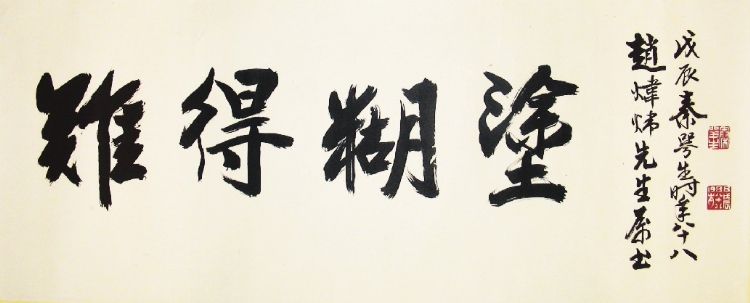 難得糊塗
趙煒先生屬書
戊辰秦咢生時年八十八